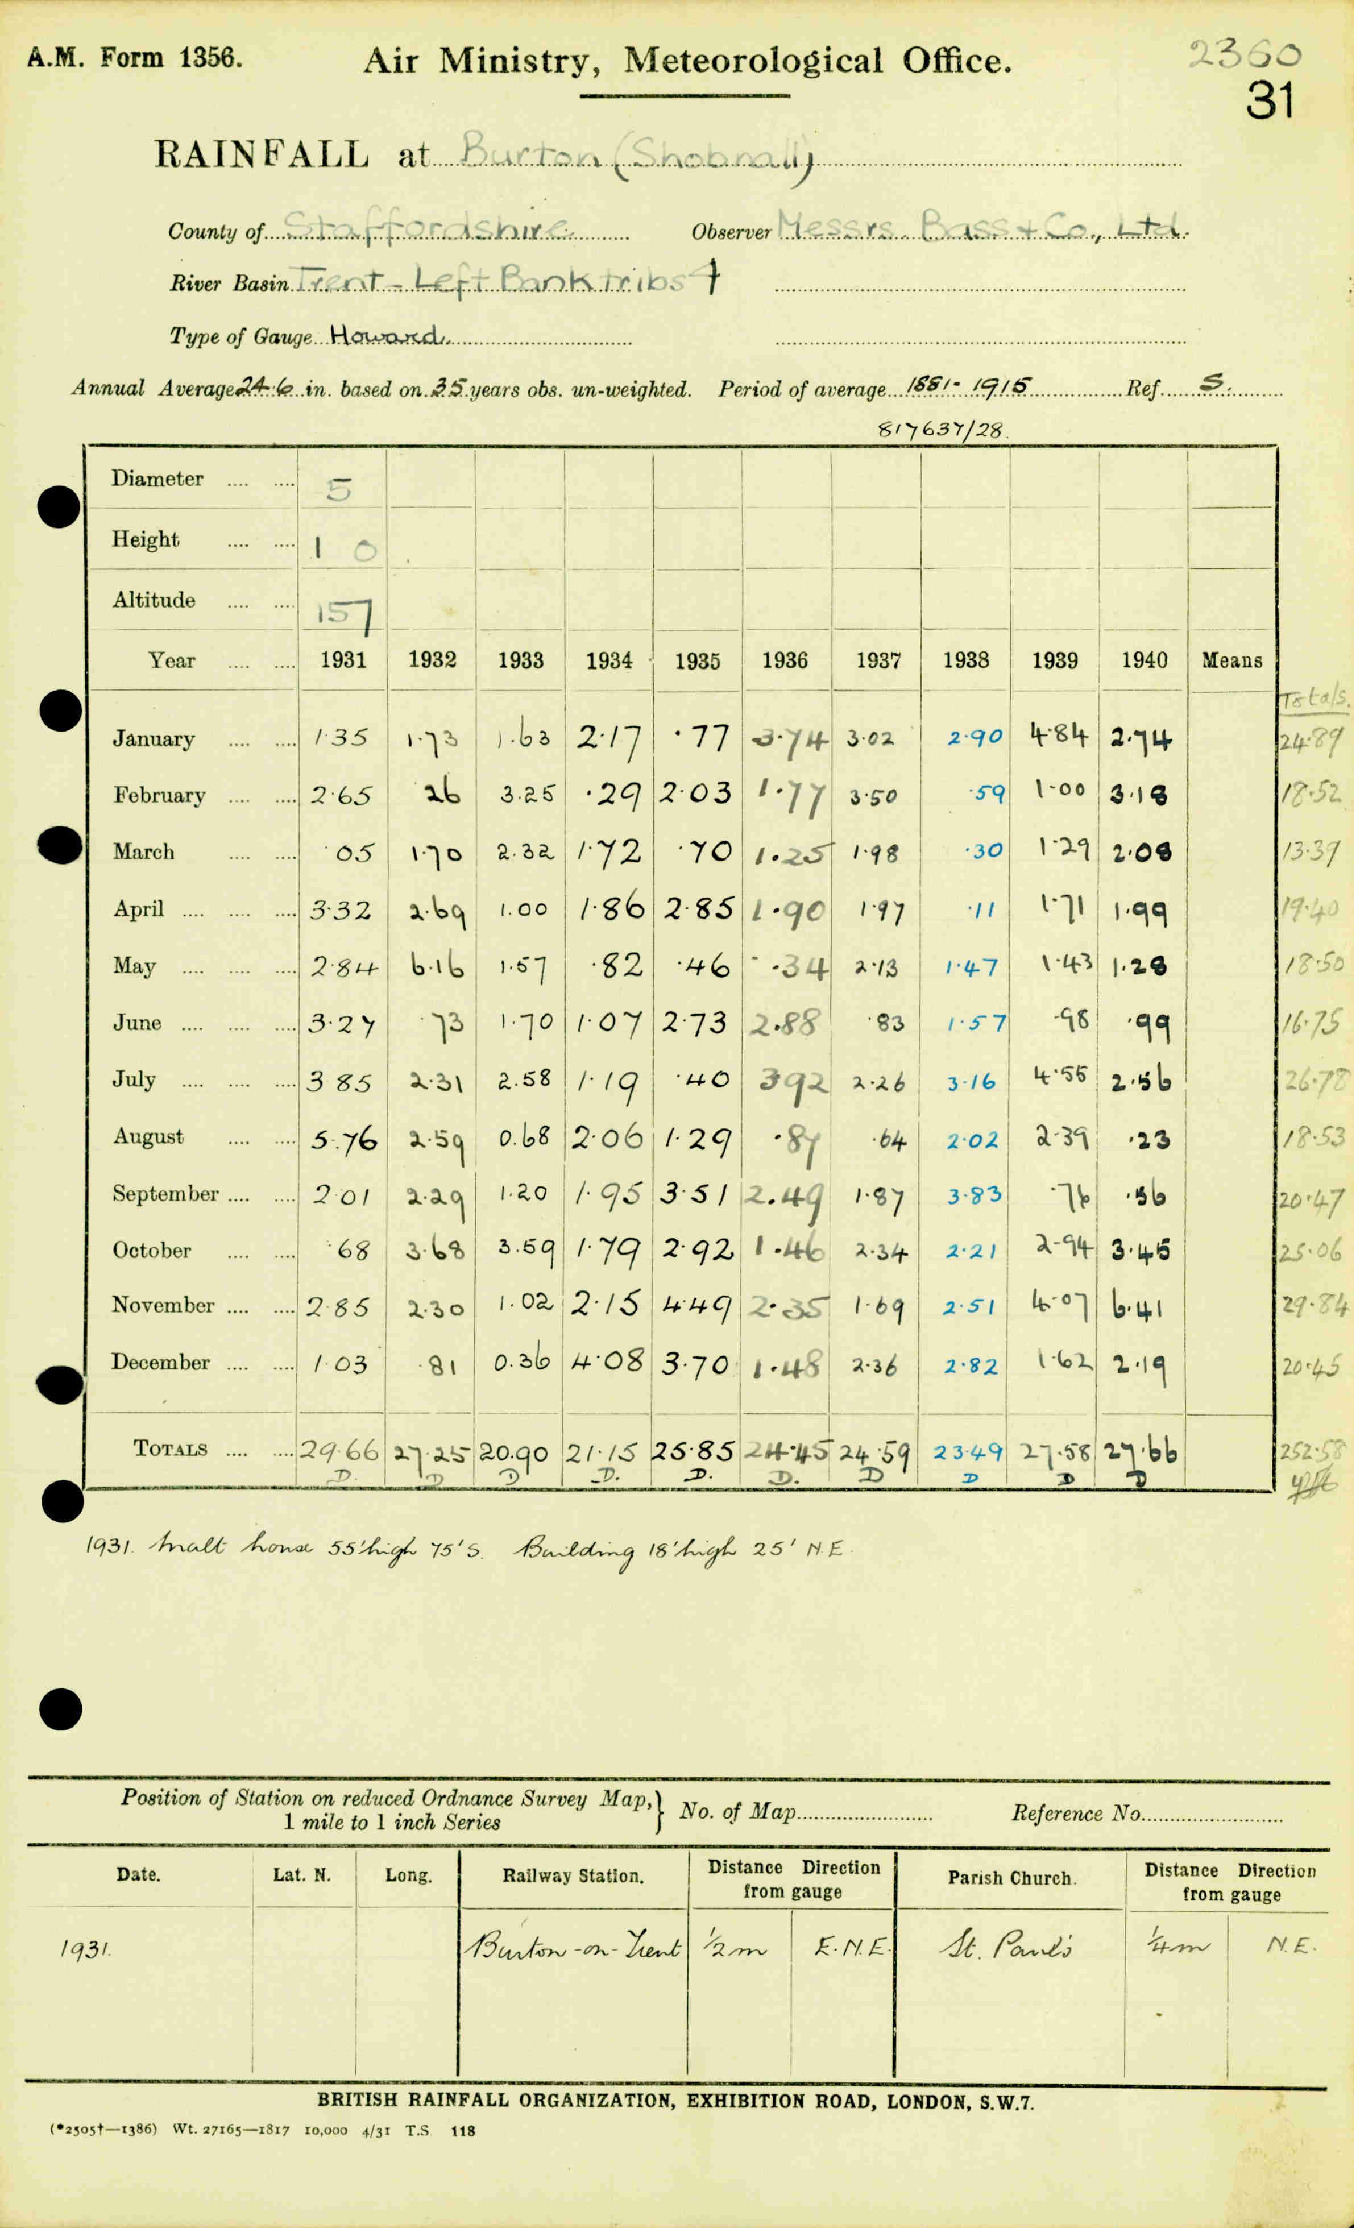 A.M. Form 1356. Air Ministry, Meteorological Office. 2360
31
RAINFALL at Burton (Shobnall)
County of Staffordshire Observer Messrs. Bass & Co., Ltd.
River Basin Trent - Left Bank tribs 4
Type of Gauge Howard.
Annual Average 24.6 in. based on 35 years obs. un-weighted. Period of average 1881-1915 Ref S.
817637/28.
Diameter 5
Height 1 0
Altitude 157
Year 1931 1932 1933 1934 1935 1936 1937 1938 1939 1940 Means
Totals.
January 1·35 1·73 1.63 2·17 ·77 3·74 3·02 2·90 4·84 2·74 24·89
February 2·65 26 3.25 ·29 2·03 1·77 3·50 ·59 1·00 3·18 18·52
March ·05 1·70 2.32 1·72 ·70 1·25 1·98 ·30 1·29 2·08 13·39
April 3·32 2·69 1.00 1·86 2·85 1·90 1·97 ·11 1·71 1·99 19·40
May 2·84 6·16 1.57 ·82 ·46 ·34 2·13 1·47 1·43 1·28 18·50
June 3·27 ·73 1·70 1·07 2·73 2·88 ·83 1·57 ·98 ·99 16·75
July 3 85 2·31 2.58 1·19 ·40 3 92 2·26 3·16 4·55 2·56 26·78
August 5·76 2·59 0.68 2·06 1·29 ·87 ·64 2·02 2·39 ·23 18·53
September 2·01 2·29 1·20 1·95 3·51 2·49 1·87 3·83 ·76 ·56 20·47
October ·68 3·68 3.59 1·79 2·92 1·46 2·34 2·21 2·94 3·45 25·06
November 2·85 2·30 1.02 2·15 4·49 2·35 1·69 2·51 4·07 6·41 29·84
December 1·03 ·81 0.36 4·08 3·70 1·48 2·36 2·82 1·62 2·19 20·45
TOTALS 29·66 27·25 20.90 21·15 25·85 24·45 24·59 23·49 27·58 27·66 252·58
D. D D D. D. D. D D D D
1931. Malt house 55' high 75' S. Building 18' high 25' N.E.
Position of Station on reduced Ordnance Survey Map, } No. of Map Reference No.
1 mile to 1 inch Series
Date. Lat. N. Long. Railway Station. Distance Direction from gauge Parish Church. Distance Direction from gauge
1931. Burton-on-Trent ½m E.N.E. St. Paul's ¼m N.E.
BRITISH RAINFALL ORGANIZATION, EXHIBITION ROAD, LONDON, S.W.7.
(*2505†—1386) Wt. 27165—1817 10,000 4/31 T.S. 118